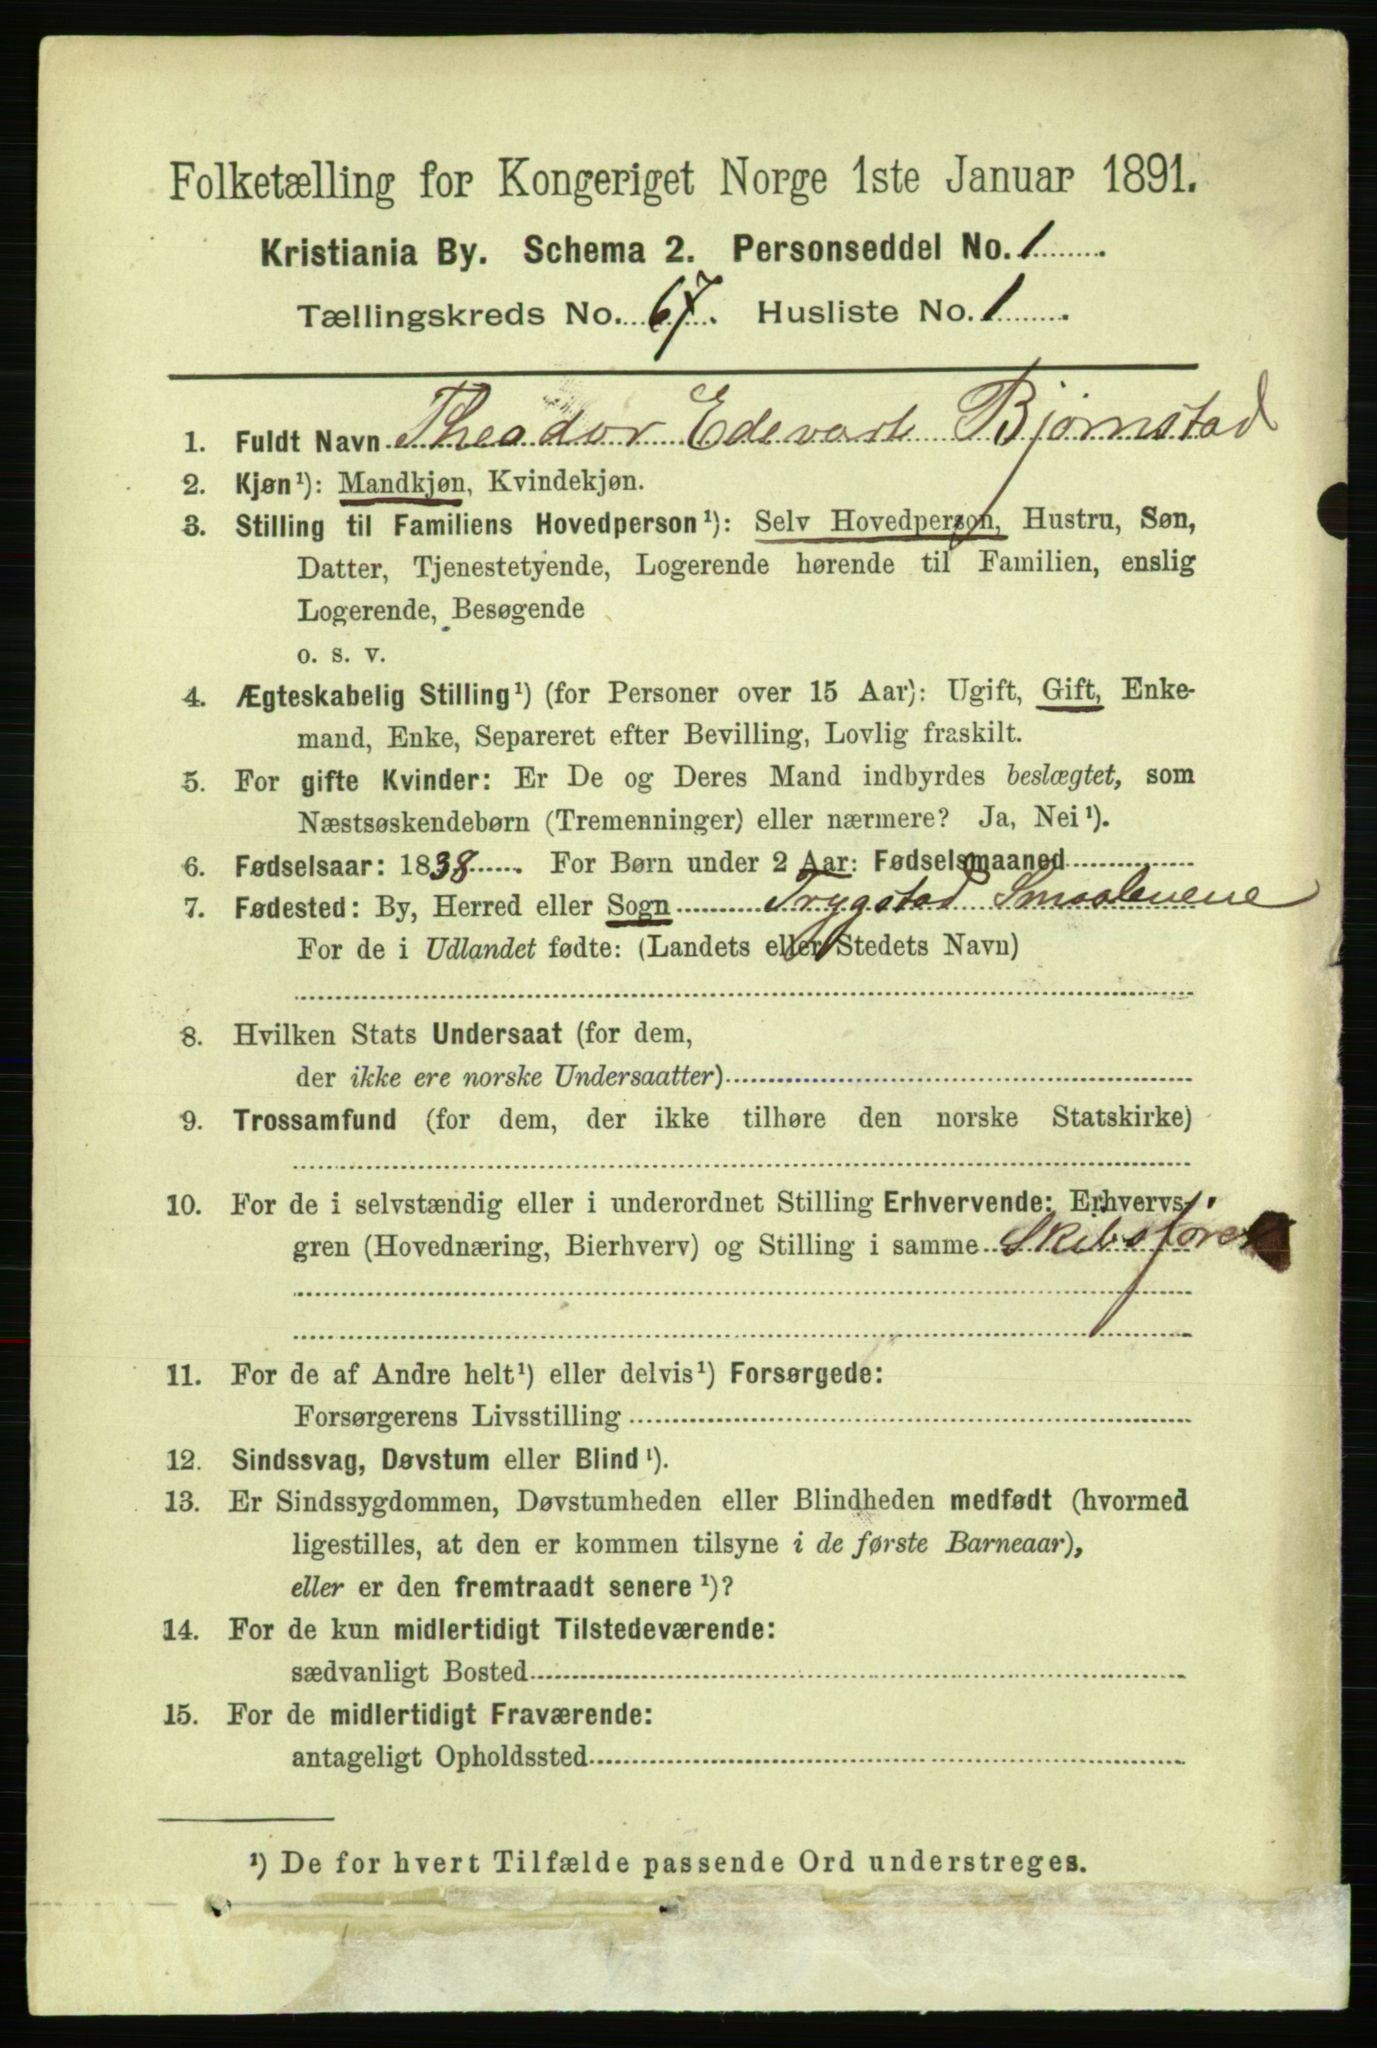 Folketælling for Kongeriget Norge 1ste Januar 1891.
Kristiania By. Schema 2. Personseddel No. 1
Tællingskreds No. 67. Husliste No. 1
1. Fuldt Navn Theodor Edevart Bjørnstad
2. Kjøn¹): Mandkjøn, Kvindekjøn.
3. Stilling til Familiens Hovedperson¹): Selv Hovedperson, Hustru, Søn,
Datter, Tjenestetyende, Logerende hørende til Familien, enslig
Logerende, Besøgende
o. s. v.
4. Ægteskabelig Stilling¹) (for Personer over 15 Aar): Ugift, Gift, Enke-
mand, Enke, Separeret efter Bevilling, Lovlig fraskilt.
5. For gifte Kvinder: Er De og Deres Mand indbyrdes beslægtet, som
Næstsøskendebørn (Tremenninger) eller nærmere? Ja, Nei¹).
6. Fødselsaar: 1838. For Børn under 2 Aar: Fødselsmaaned
7. Fødested: By, Herred eller Sogn Trygstad Smaalenene
For de i Udlandet fødte: (Landets eller Stedets Navn)
8. Hvilken Stats Undersaat (for dem,
der ikke ere norske Undersaatter)
9. Trossamfund (for dem, der ikke tilhøre den norske Statskirke)
10. For de i selvstændig eller i underordnet Stilling Erhvervende: Erhvervs-
gren (Hovednæring, Bierhverv) og Stilling i samme Skibsfører
11. For de af Andre helt¹) eller delvis¹) Forsørgede:
Forsørgerens Livsstilling
12. Sindssvag, Døvstum eller Blind¹).
13. Er Sindssygdommen, Døvstumheden eller Blindheden medfødt (hvormed
ligestilles, at den er kommen tilsyne i de første Barneaar),
eller er den fremtraadt senere¹)?
14. For de kun midlertidigt Tilstedeværende:
sædvanligt Bosted
15. For de midlertidigt Fraværende:
antageligt Opholdssted
¹) De for hvert Tilfælde passende Ord understreges.